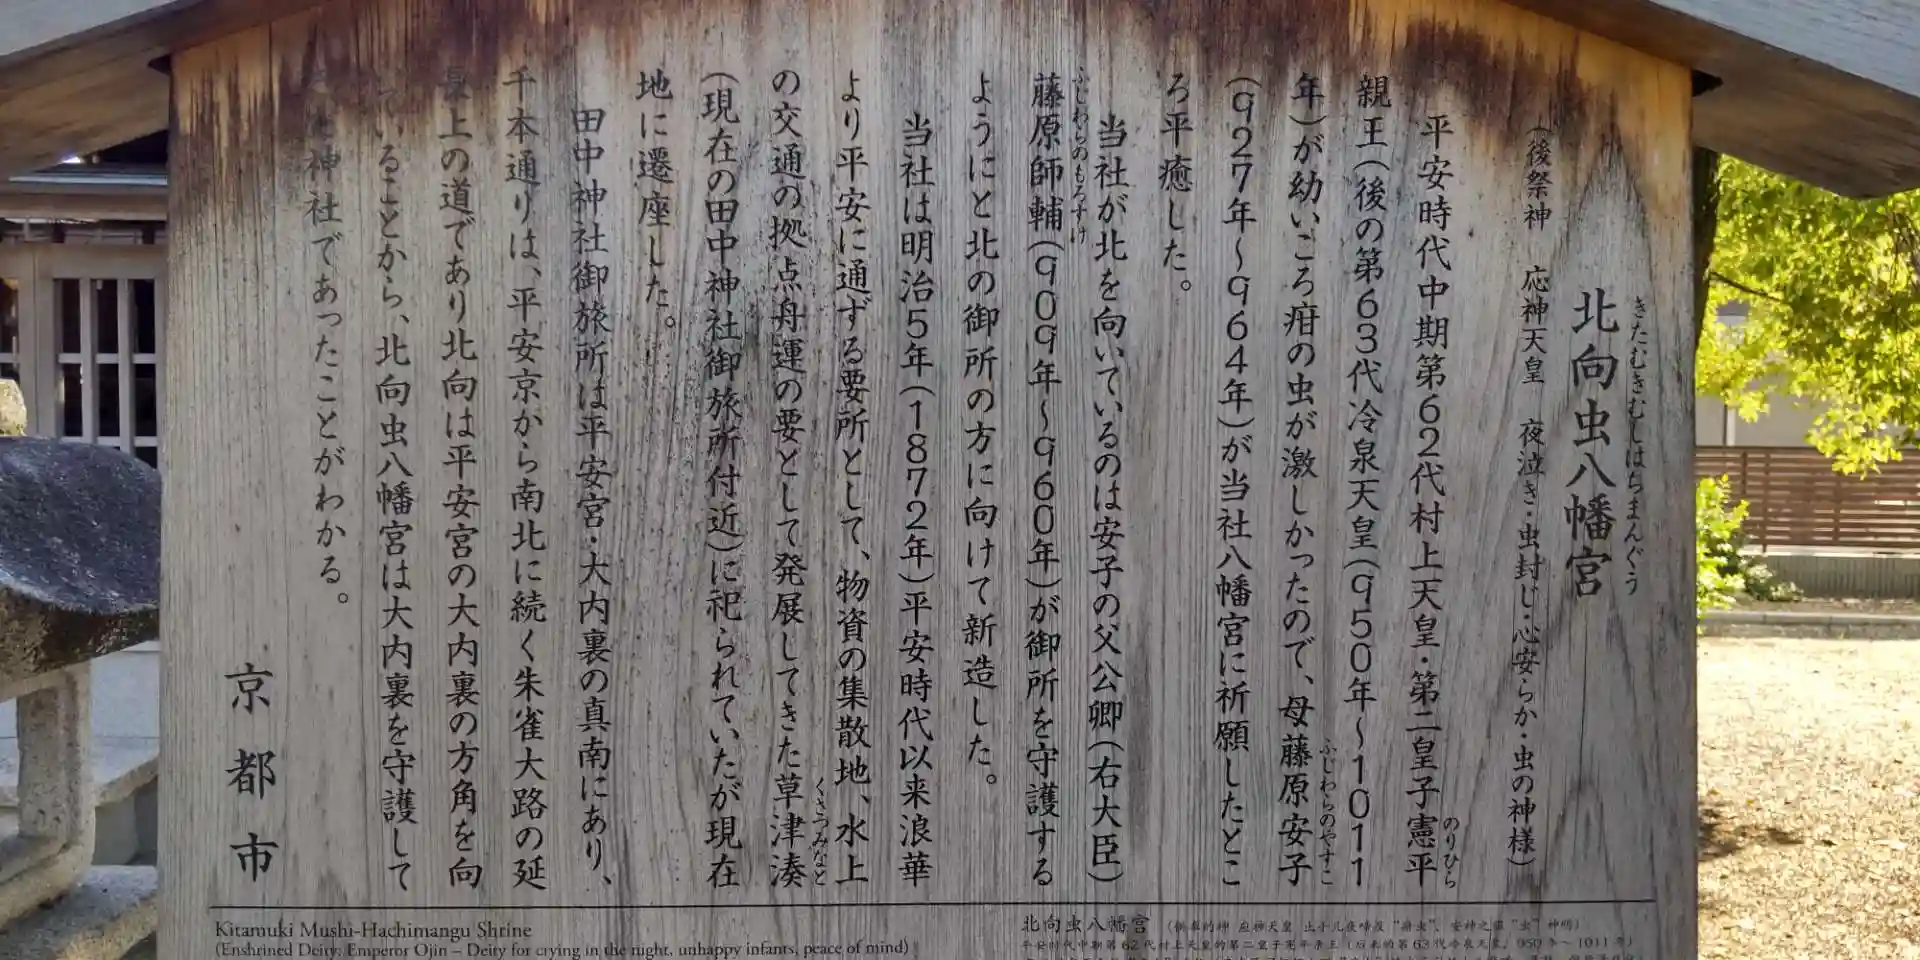 きたむきむしはちまんぐう
北向虫八幡宮
(後祭神 応神天皇 夜泣き・虫封じ・心安らか・虫の神様)
平安時代中期第62代村上天皇・第二皇子憲平
のりひら
親王(後の第63代冷泉天皇(950年〜1011
年)が幼いころ疳の虫が激しかったので、母藤原安子
ふじわらのやすこ
(927年〜964年)が当社八幡宮に祈願したとこ
ろ平癒した。
当社が北を向いているのは安子の父公卿(右大臣)
藤原師輔(909年〜960年)が御所を守護する
ふじわらのもろすけ
ようにと北の御所の方に向けて新造した。
当社は明治5年(1872年)平安時代以来浪華
より平安に通ずる要所として、物資の集散地、水上
の交通の拠点舟運の要として発展してきた草津湊
くさつみなと
(現在の田中神社御旅所付近)に祀られていたが現在
地に遷座した。
田中神社御旅所は平安宮・大内裏の真南にあり、
千本通りは、平安京から南北に続く朱雀大路の延
長上の道であり北向は平安宮の大内裏の方角を向
いることから、北向虫八幡宮は大内裏を守護して
神社であったことがわかる。
京都市
Kitamuki Mushi-Hachimangu Shrine
(Enshrined Deity: Emperor Ojin – Deity for crying in the night, unhappy infants, peace of mind)
北向虫八幡宮